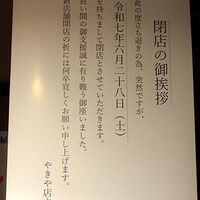 閉店の御挨拶
此の度立ち退きの為、突然ですが、
令和七年六月二十八日（土）
を持ちまして閉店とさせていただきます。
長い間の御支援誠に有り難う御座いました。
新店舗開店の折には何卒宜しくお願い申し上げます。
やきや店